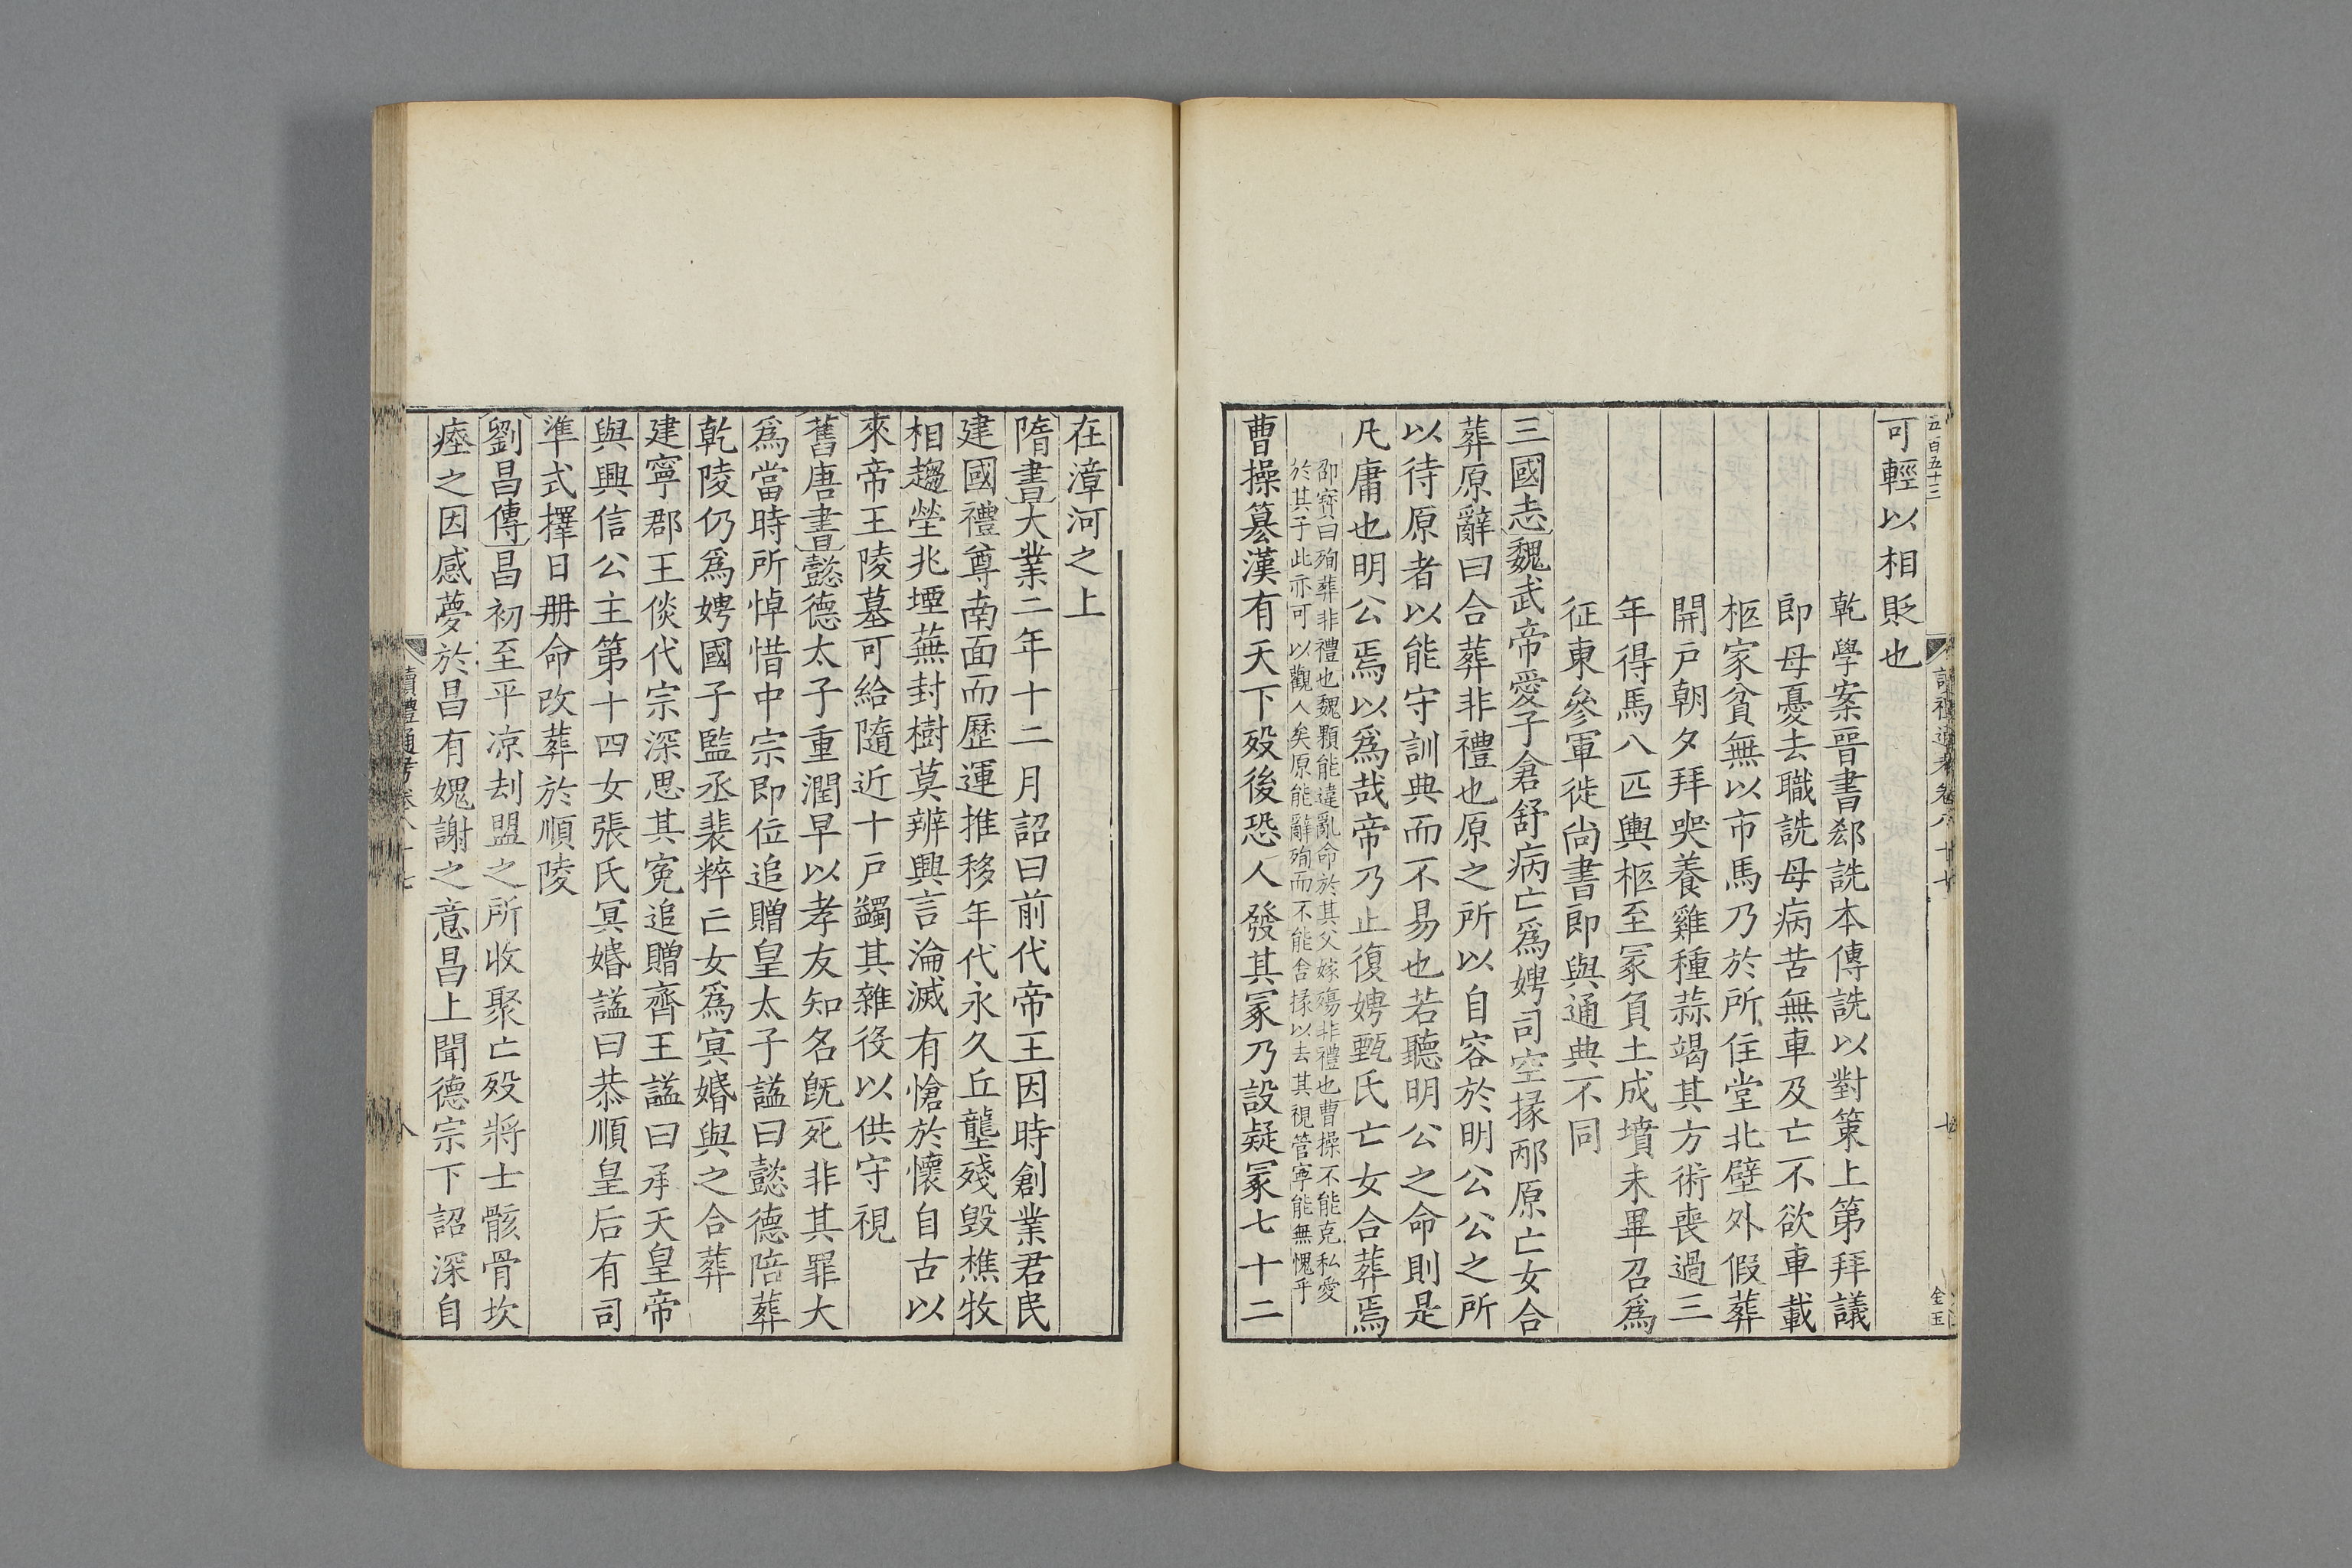 五百五十三
可輕以相貶也
乾學案晉書郄詵本傳詵以對策上第拜議
郎母憂去職詵母病苦無車及亡不欲車載
柩家貧無以市馬乃於所住堂北壁外假葬
開戸朝夕拜哭養雞種蒜竭其方術喪過三
年得馬八匹輿柩至冢負土成墳未畢召爲
征東參軍徙尚書郎與通典不同
三國志魏武帝愛子倉舒病亡爲娉司空掾邴原亡女合
葬原辭曰合葬非禮也原之所以自容於明公公之所
以待原者以能守訓典而不易也若聽明公之命則是
凡庸也明公焉以爲哉帝乃止復娉甄氏亡女合葬焉
邵寶曰殉葬非禮也魏顆能違亂命於其父嫁殤非禮也曹操不能克私愛
於其子此亦可以觀人矣原能辭殉而不能舍掾以去其視管寧能無愧乎
曹操簒漢有天下歿後恐人發其冢乃設疑冢七十二
在漳河之上
隋書大業二年十二月詔曰前代帝王因時創業君民
建國禮尊南面而歷運推移年代永久丘壟殘毀樵牧
相趨塋兆堙蕪封樹莫辨興言淪滅有愴於懷自古以
來帝王陵墓可給隨近十戸蠲其雜役以供守視
舊唐書懿德太子重潤早以孝友知名旣死非其罪大
爲當時所悼惜中宗即位追贈皇太子謚曰懿德陪葬
乾陵仍爲娉國子監丞裴粹亡女爲冥婚與之合葬
建寧郡王倓代宗深思其寃追贈齊王謚曰承天皇帝
與興信公主第十四女張氏冥婚謚曰恭順皇后有司
準式擇日册命改葬於順陵
劉昌傳昌初至平凉刦盟之所收聚亡歿將士骸骨坎
瘞之因感夢於昌有媿謝之意昌上聞德宗下詔深自
讀禮通考卷八十七
八